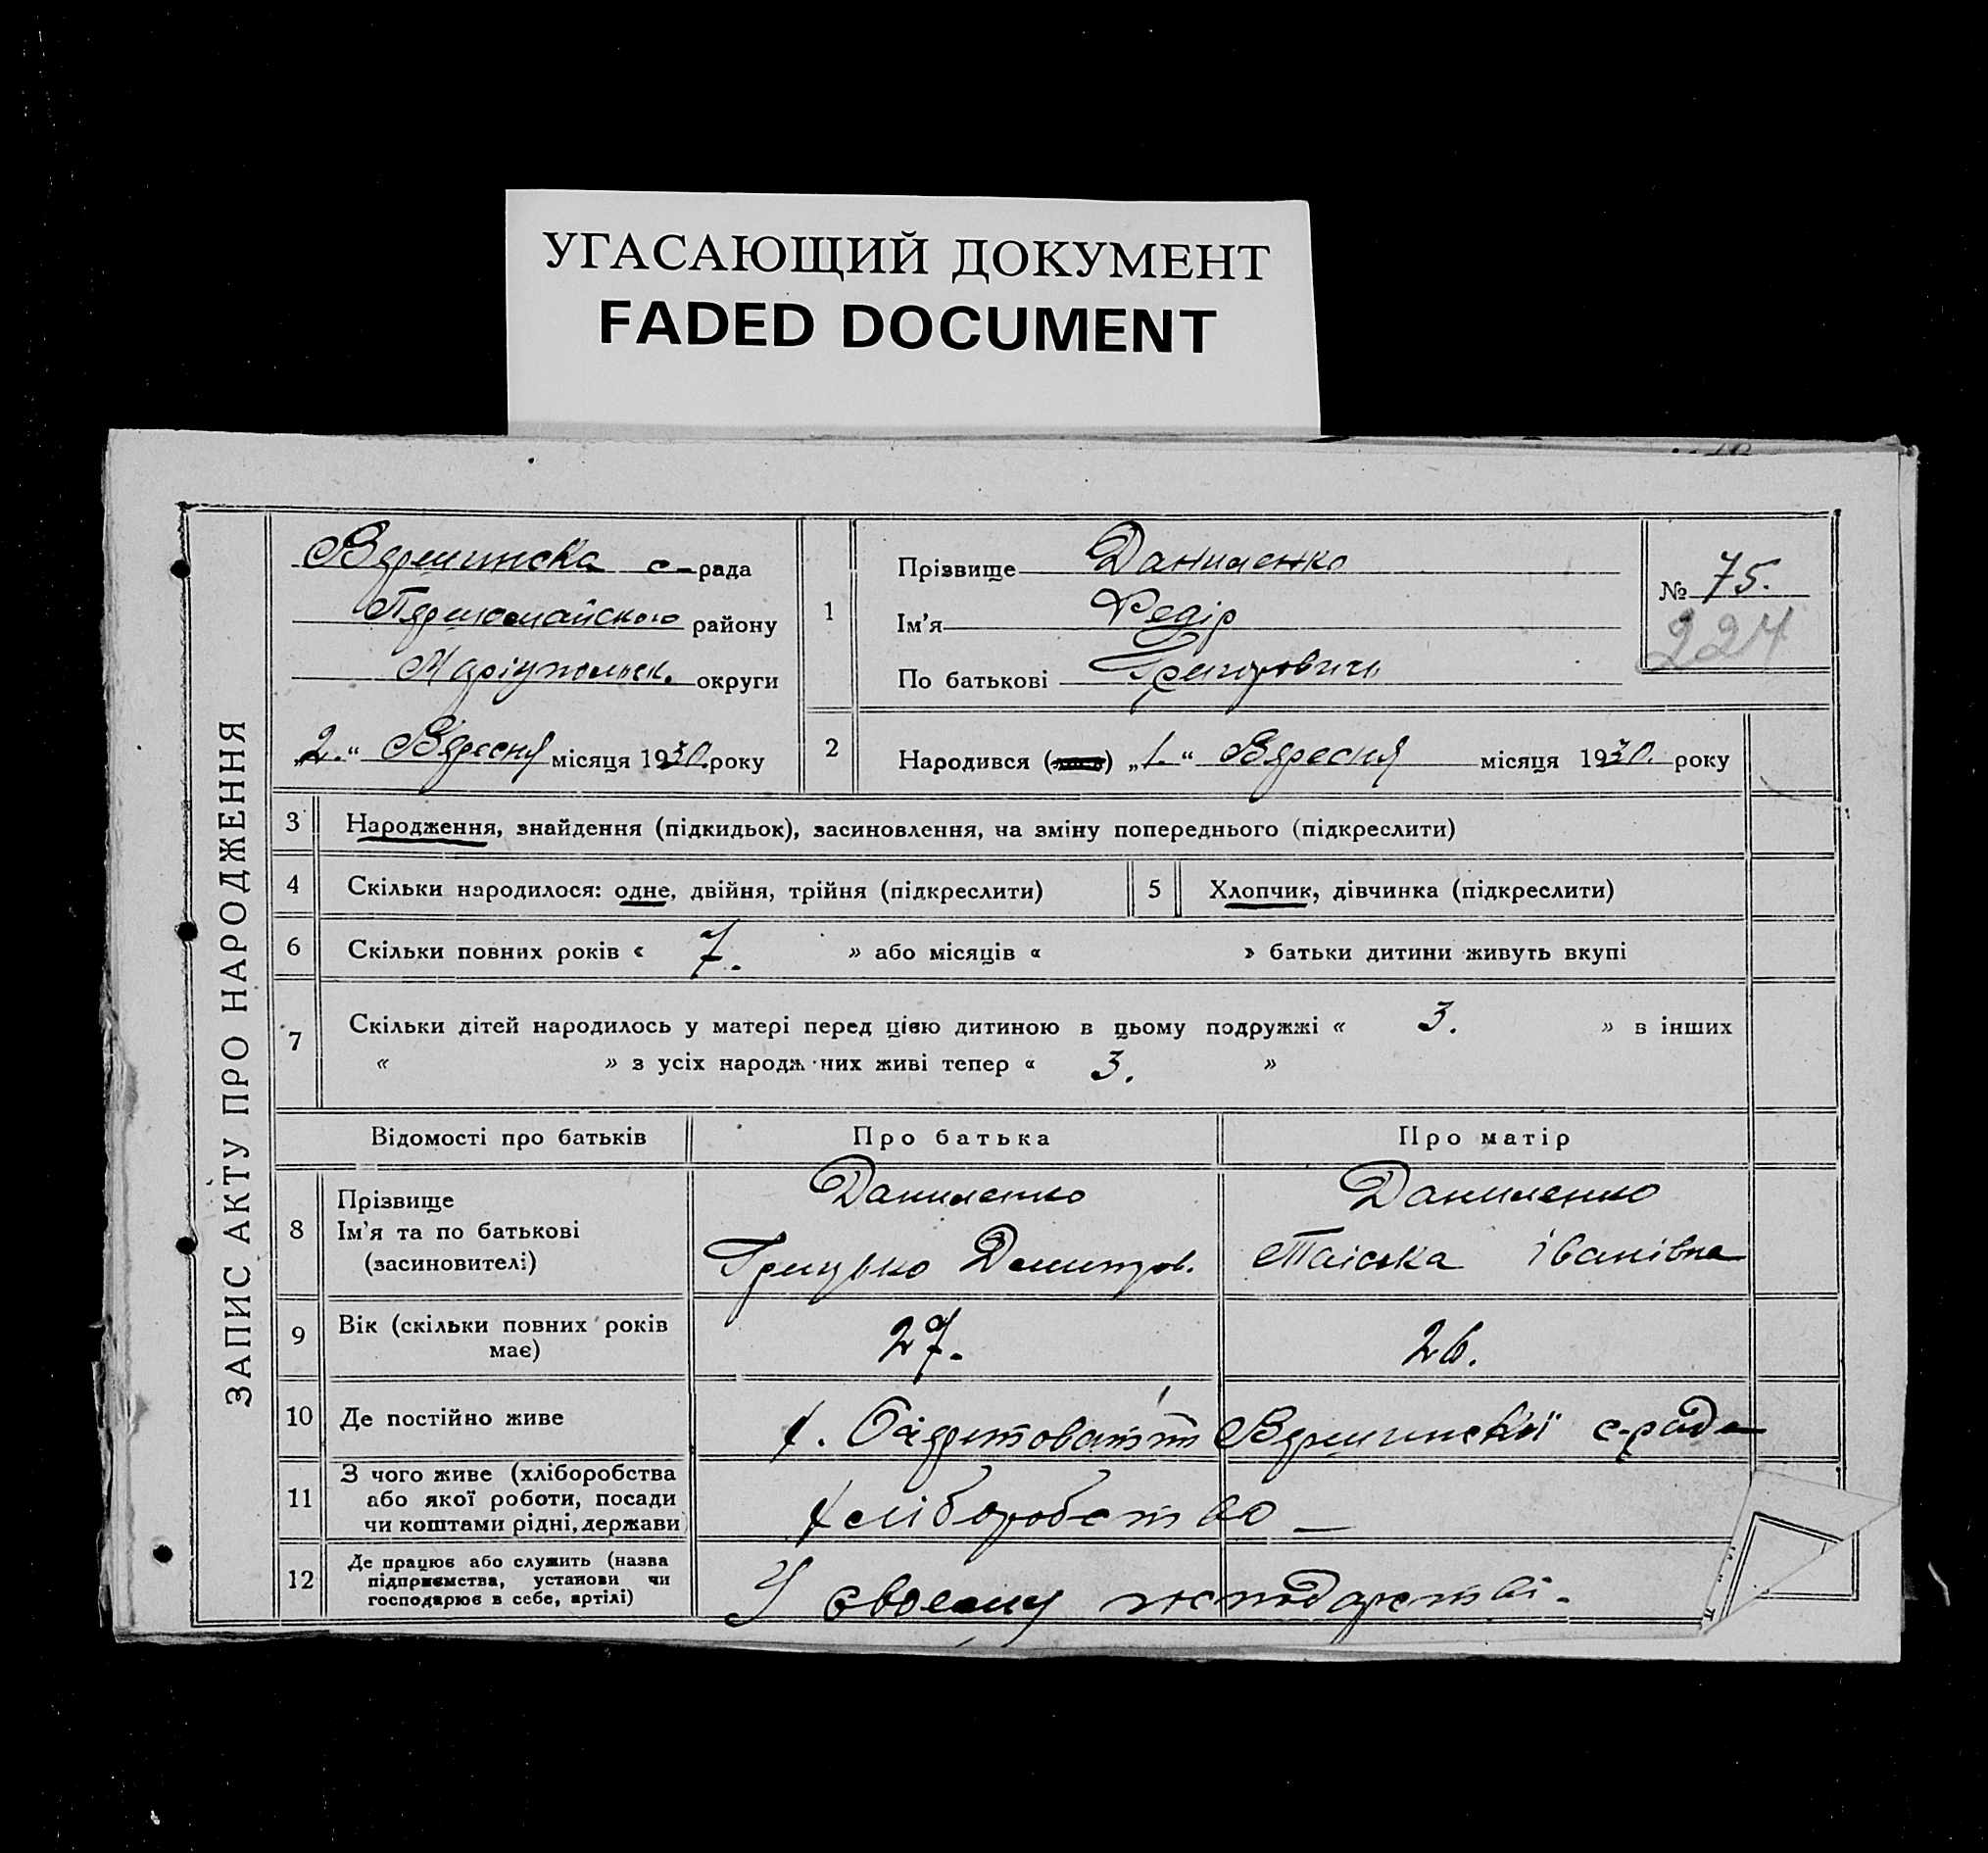 УГАСАЮЩИЙ ДОКУМЕНТ
FADED DOCUMENT
ЗАПИС АКТУ ПРО НАРОДЖЕННЯ
с-рада
Першомайського району
Маріупольськ. округи
„2.“ Вересня місяця 1930. року
1
Прізвище Даниленко
Ім'я Федір
По батькові Григорович
№ 75.
224
2
Народився „1.“ Вересня місяця 1930. року
3 Народження, знайдення (підкидьок), засиновлення, на зміну попереднього (підкреслити)
4 Скільки народилося: одне, двійня, трійня (підкреслити) 5 Хлопчик, дівчинка (підкреслити)
6 Скільки повних років « 7. » або місяців « » батьки дитини живуть вкупі
7 Скільки дітей народилось у матері перед цією дитиною в цьому подружжі « 3. » в інших
« » з усіх народж них живі тепер « 3. »
Відомості про батьків Про батька Про матір
8
Прізвище Даниленко Даниленко
Ім'я та по батькові
(засиновителі) Грицько Демитров. Таіська іванівна
9 Вік (скільки повних років
має) 27. 26.
10 Де постійно живе х. с-рада
11
З чого живе (хліборобства
або якої роботи, посади
чи коштами рідні, держави) хліборобство —
12
Де працює або служить (назва
підприємства, установи чи
господарює в себе, артілі) У своему господарстві.